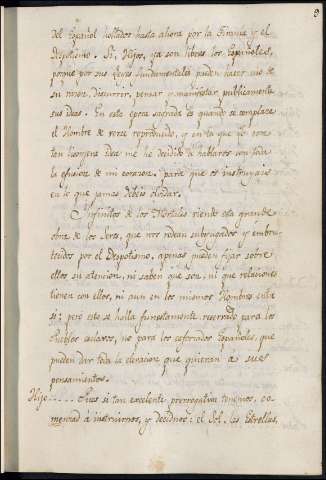 3
del Español hollados hasta ahora por la Tirania y el
Despotismo. Si, Hijos, ya son libres los Españoles,
porque por sus Leyes fundamentales pueden hacer uso de
su razon, discurrir, pensar y manifestar publicamente
sus ideas. En esta epoca sagrada es quando se complace
el Hombre de verse reproducido, y en la que yo con
tan lisongera idea me he decidido á hablaros con toda
la efusion de mi corazon, para que os instruyais
en lo que jamas debeis olvidar.
Infinitos de los Mortales viendo esta grande
obra de los Seres, que nos rodean subyugados y embru-
tecidos por el Despotismo, apenas pueden fijar sobre
ellos su atencion, ni saben que son, ni que relaciones
tienen con ellos, ni aun en los mismos Hombres entre
si; pero esto se halla funestamente reservado para los
Pueblos esclavos, no para los esforzados Españoles, que
pueden dar toda la elevacion que quieran á sus
pensamientos.
Hijo..... Pues si tan excelente prerrogativa tenemos, co-
menzad á instruirnos, y decidnos: el Sol, las Estrellas,